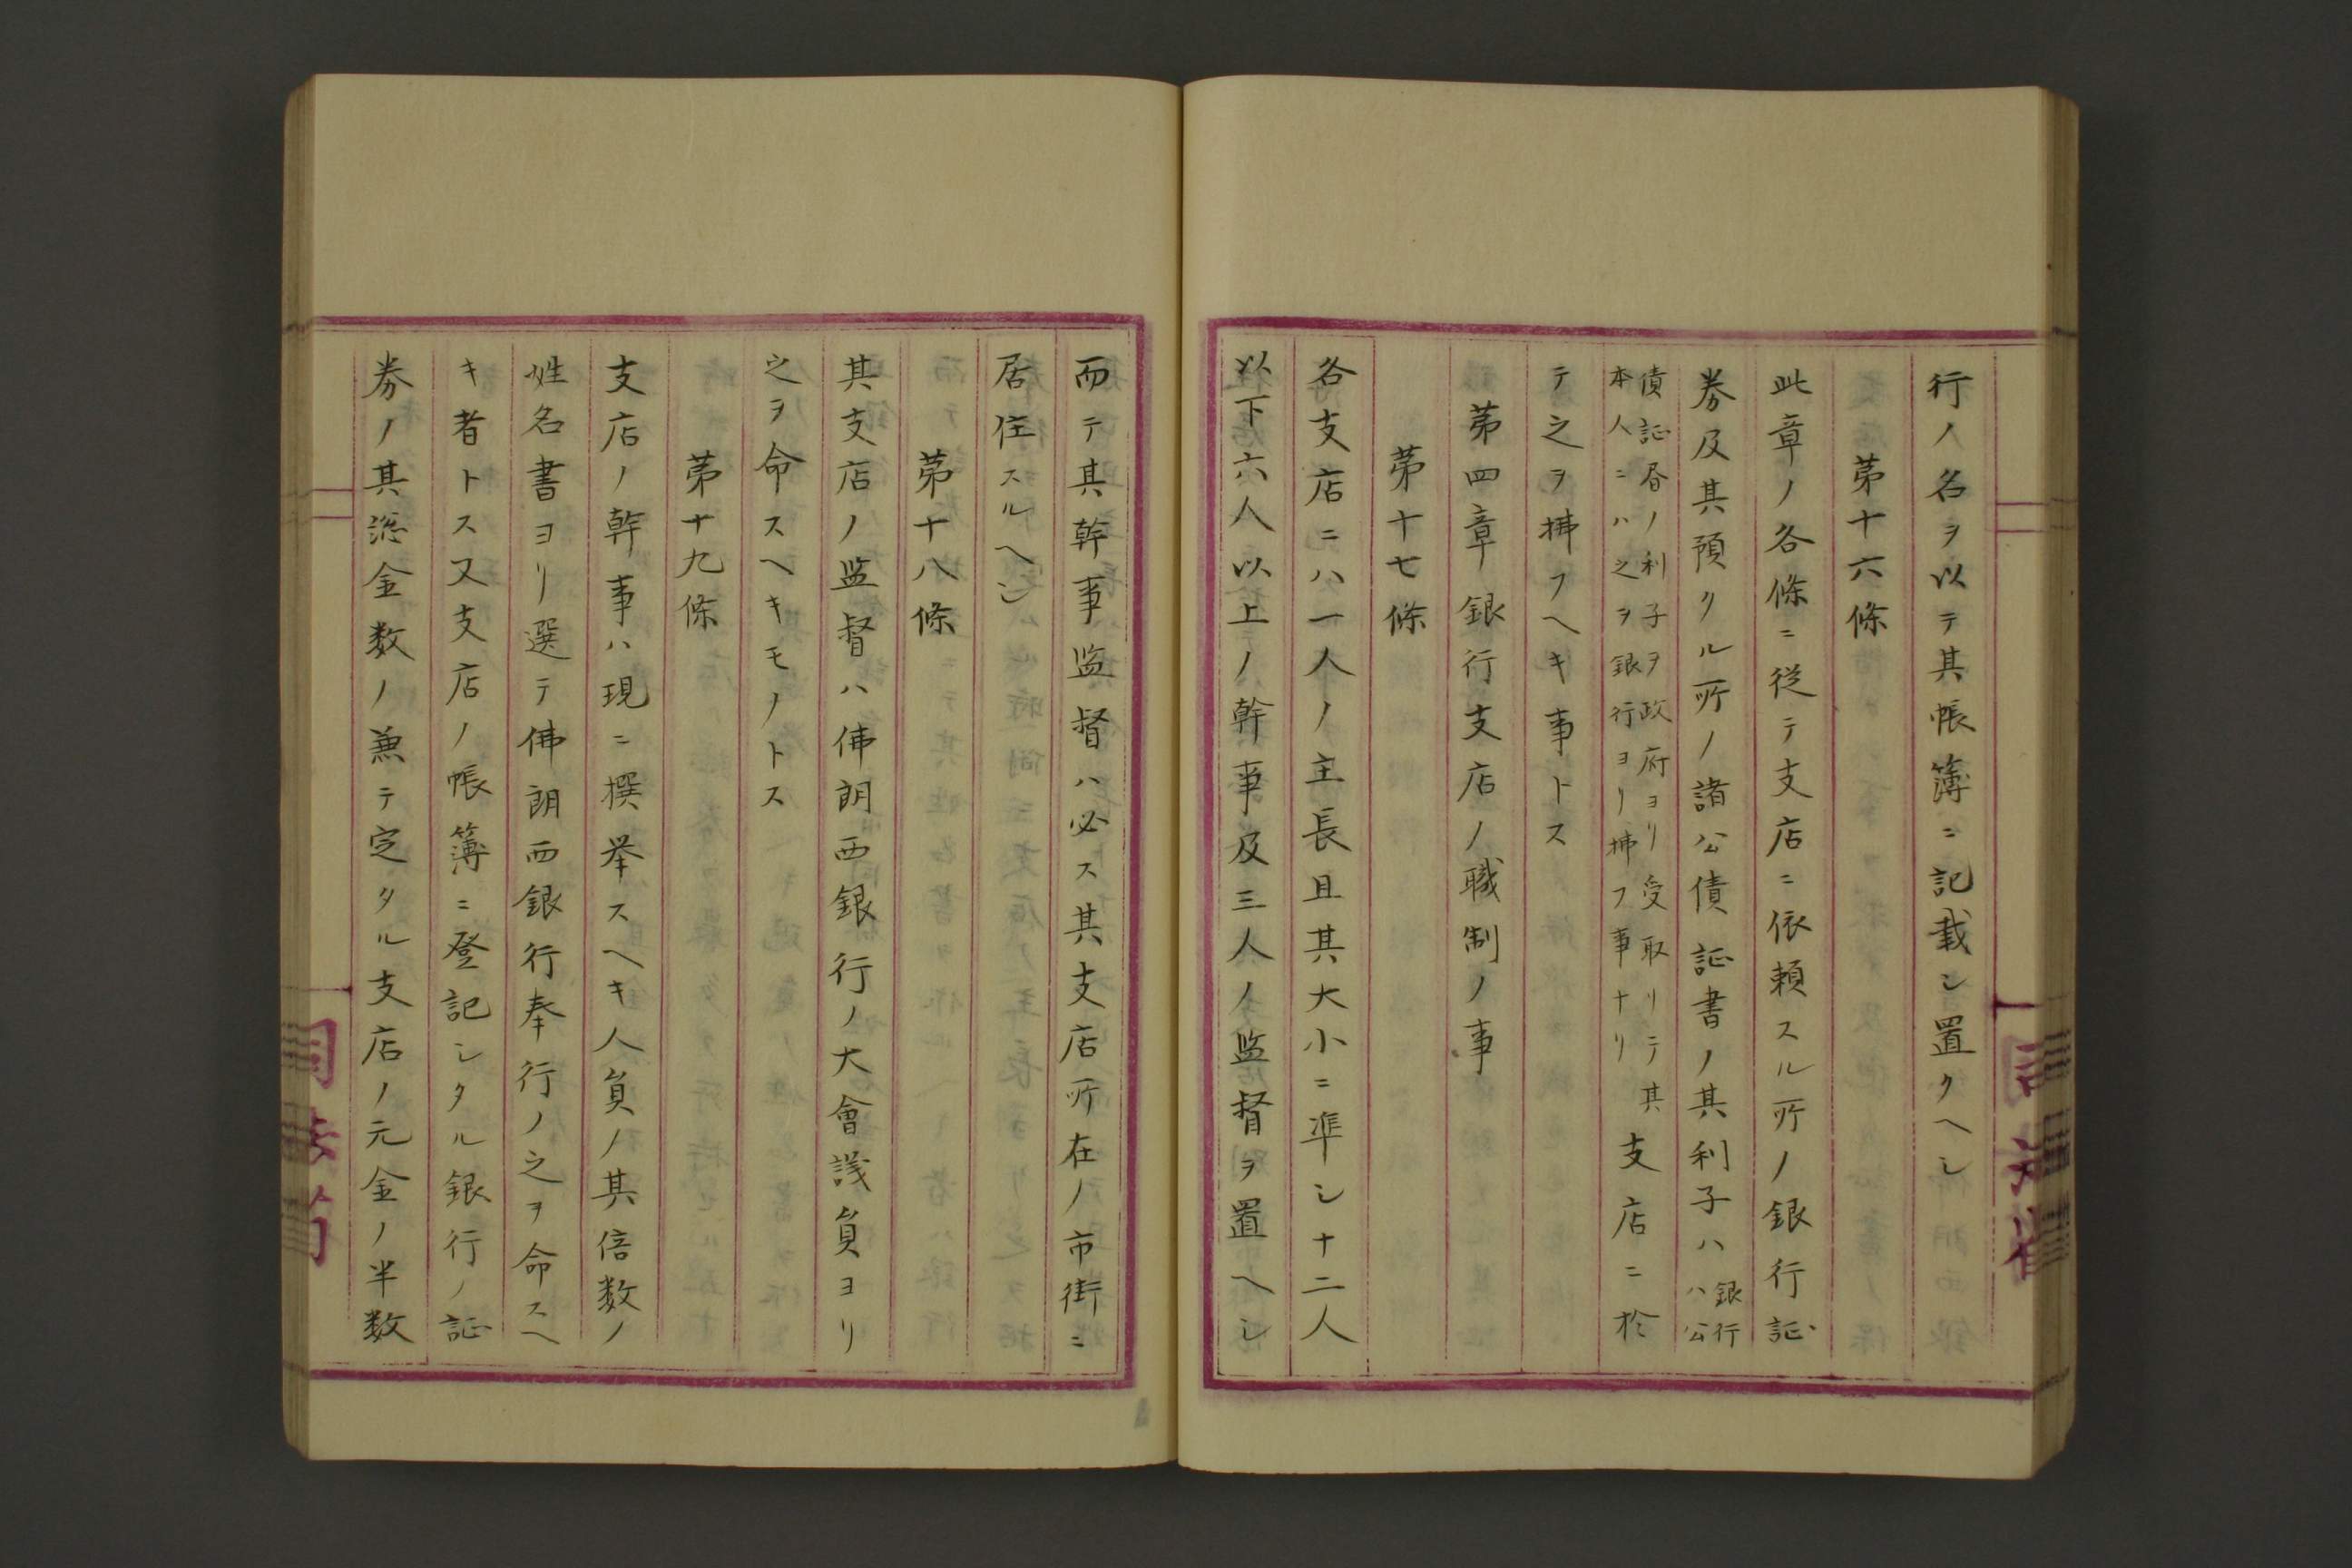 行ノ名ヲ以テ其帳簿ニ記載シ置クヘシ
第十六條
此章ノ各條ニ従テ支店ニ依頼スル所ノ銀行証
券及其預クル所ノ諸公債証書ノ其利子ハ銀行ハ公
債証書ノ利子ヲ政府ヨリ受取リテ其
本人ニハ之ヲ銀行ヨリ拂フ事ナリ
支店ニ於
テ之ヲ拂フヘキ事トス
第四章銀行支店ノ職制ノ事
第十七條
各支店ニハ一人ノ主長且其大小ニ準シ十二人
以下六人以上ノ幹事及三人ノ監督ヲ置ヘシ
而テ其幹事監督ハ必ス其支店所在ノ市街ニ
居住スルヘシ
第十八條
其支店ノ監督ハ佛朗西銀行ノ大會議負ヨリ
之ヲ命スヘキモノトス
第十九條
支店ノ幹事ハ現ニ撰举スヘキ人負ノ其倍数ノ
姓名書ヨリ選テ佛朗西銀行奉行ノ之ヲ命スヘ
キ者トス又支店ノ帳簿ニ登記シタル銀行ノ証
券ノ其惣金数ノ兼テ定タル支店ノ元金ノ半数